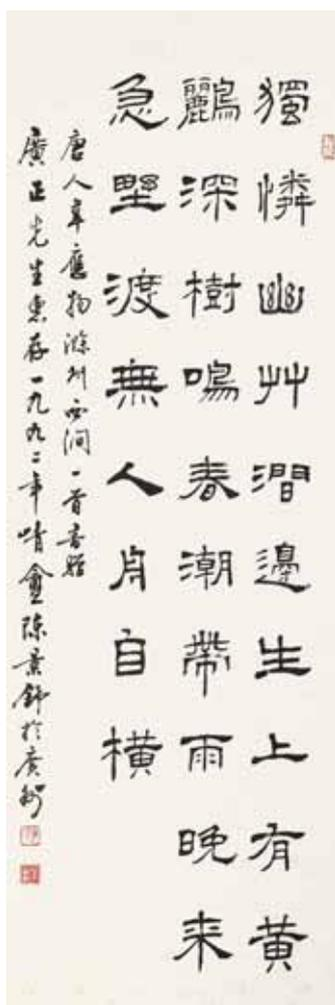 獨憐幽艸澗邊生上有黃
鸝深樹鳴春潮帶雨晚来
急野渡無人舟自橫
唐人韋應物滁州西澗一首書贻
廣正先生惠存一九九二年晴盦陳景舒於廣州